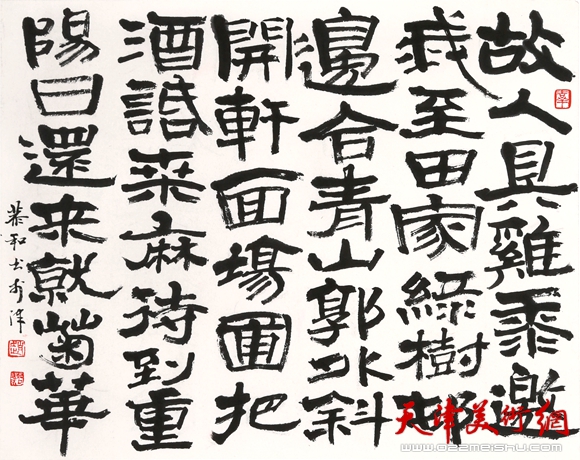 故人具雞黍邀
我至田家綠樹邨
邊合青山郭外斜
開軒面場圃把
酒話桒麻待到重
陽日還来就菊華
恭和書於津
天津美術網
www.022meishu.com